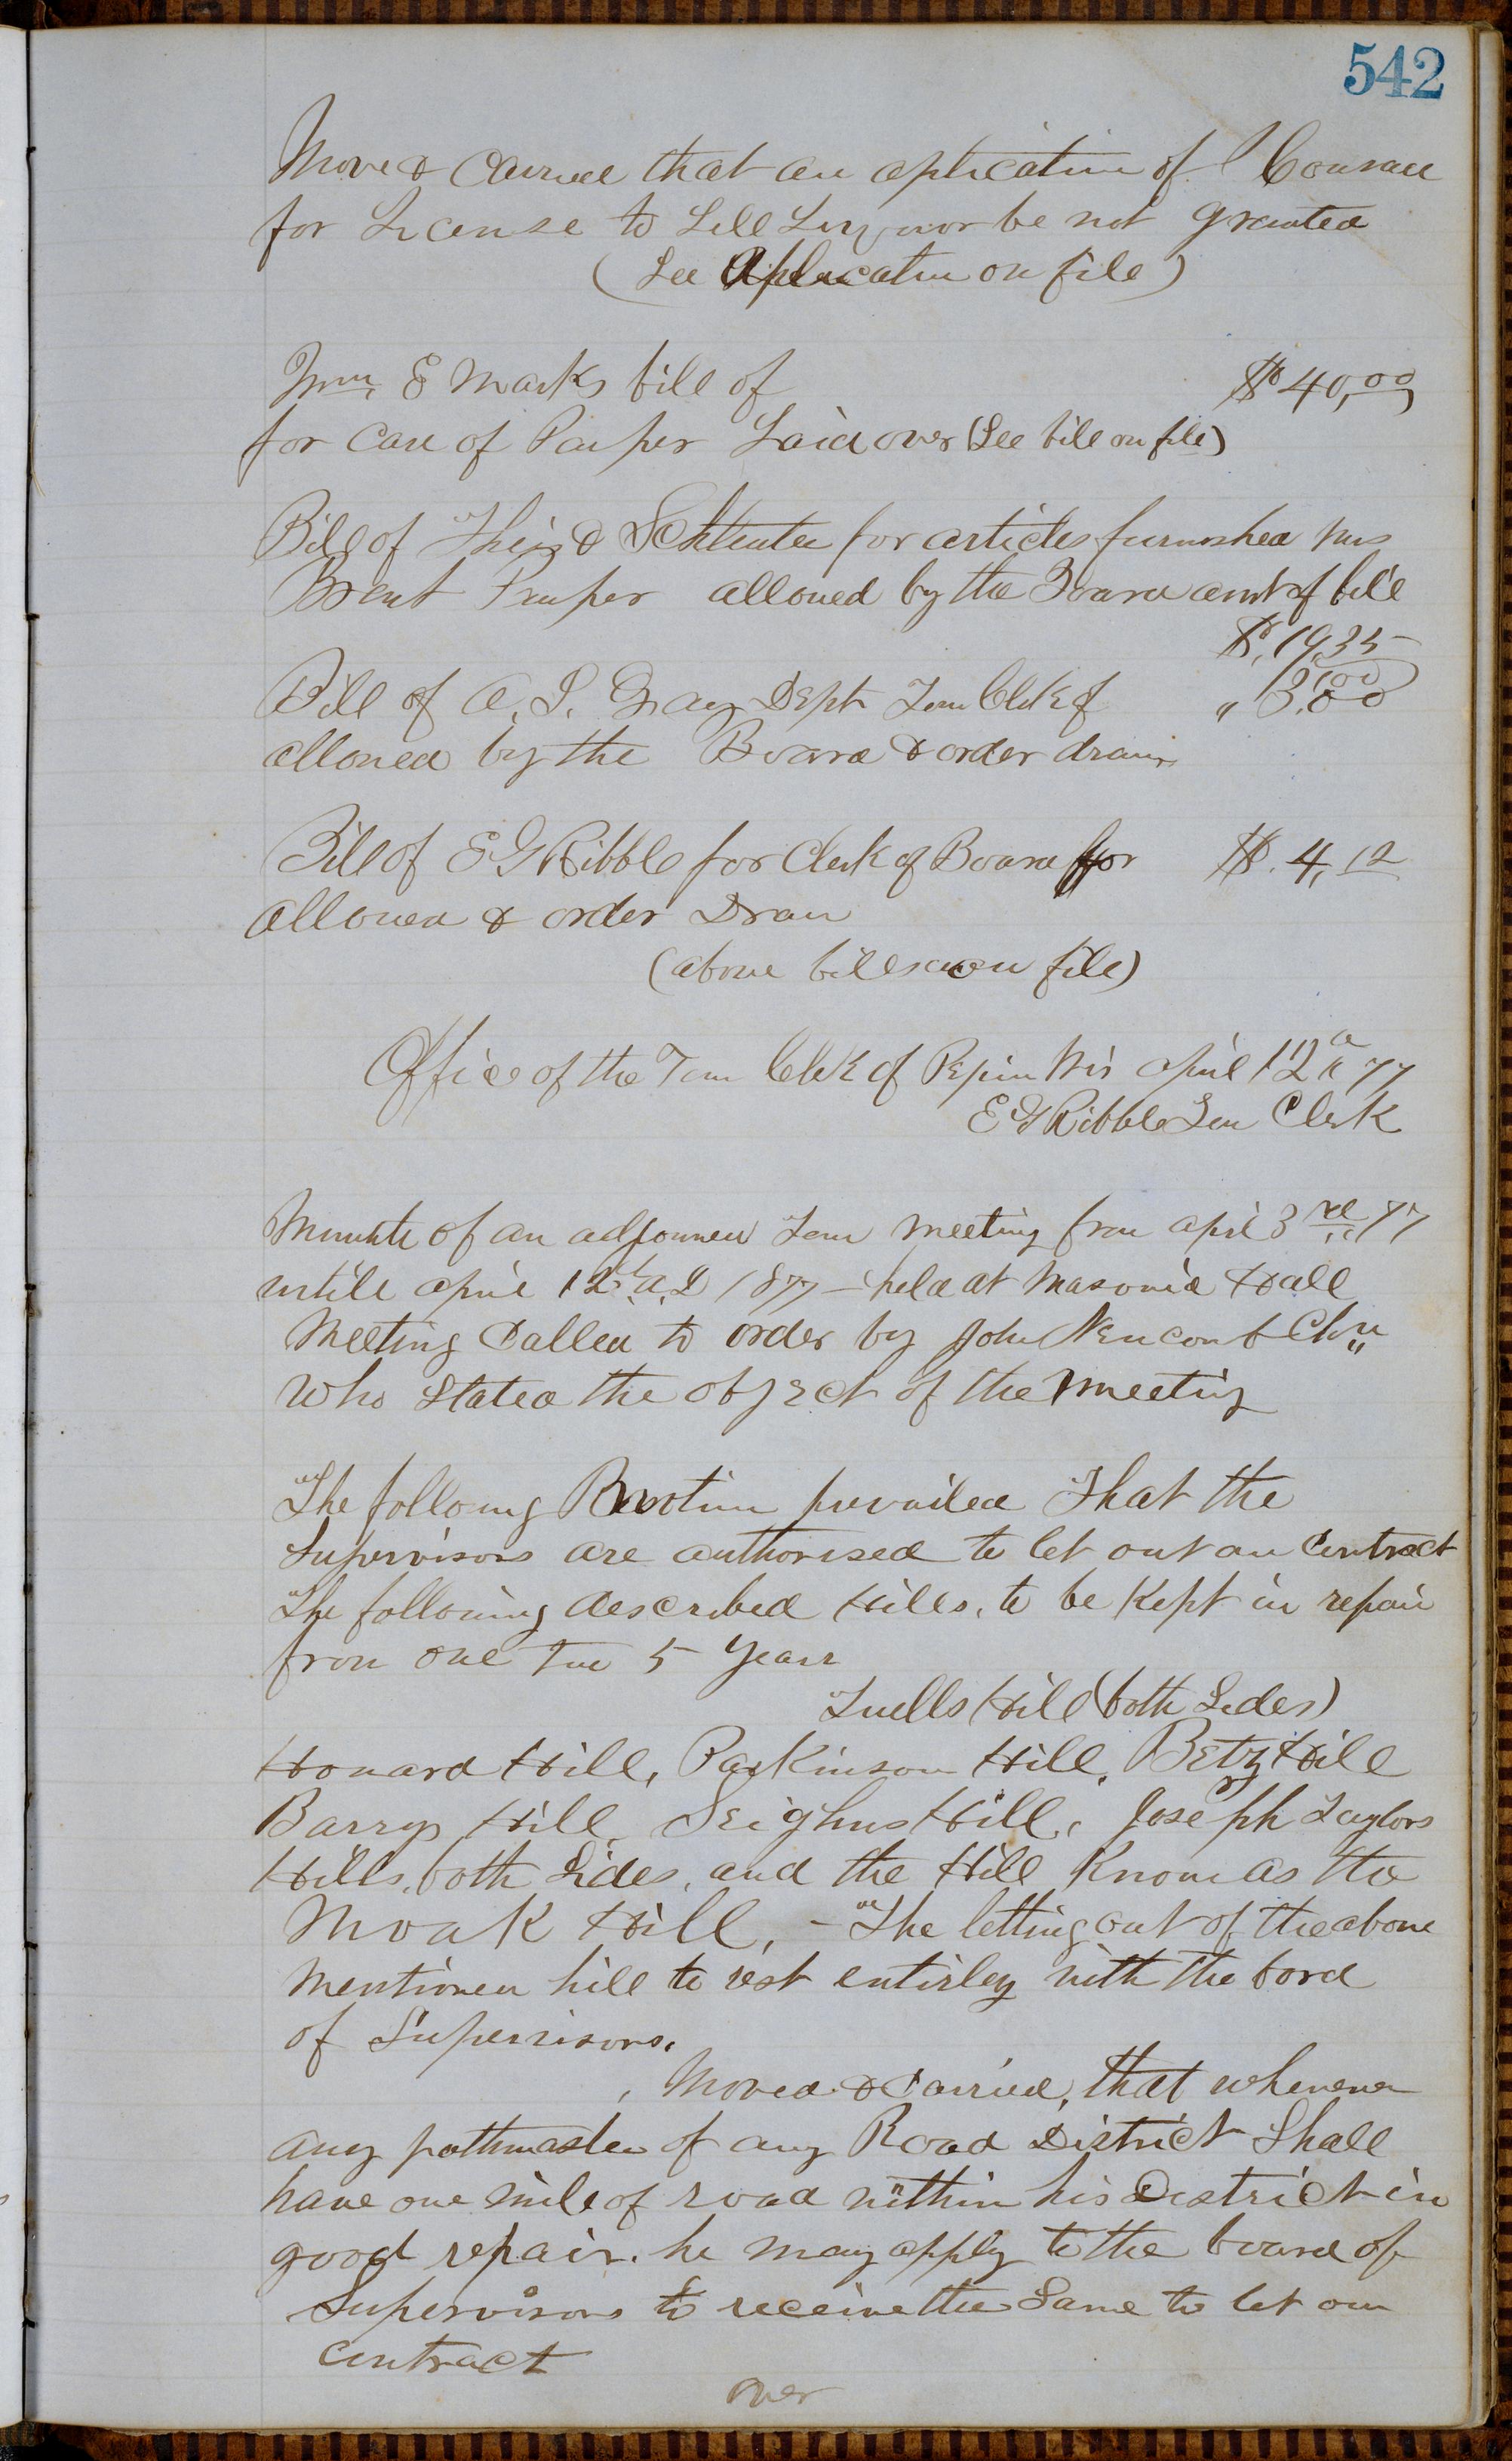 542
Moved & Carried that an aplication of Conrad
for License to Sell Liquor be not granted
(See Aplication on file)
Wm. E Marks bill of $40,00
for Care of Pauper Laid over (See bill on file)
Bill of & for articles furnished Mrs
Brent Pauper allowed by the Board amt of bill
$. 19,35
Bill of A. S. Gray Dept Town Clerk of " 3.00
allowed by the Board & order drawn
Bill of E G Ribble for Clerk of Board for $. 4,12
Allowed & order Drawn
(above bills on file)
Office of the Town Clerk of Pepin Wis april 12th 77
E G Ribble Town Clerk
Minute of an adjourned Town meeting from april 3rd 77
untill april 12th A,D 1877 – held at Masonic Hall
Meeting Called to order by John Newcomb Chn
Who Stated the object of the Meeting
The following Motion prevailed That the
Supervisors are authorised to let out on Contract
The following described Hills, to be Kept in repair
from one too 5 Years
Tuells Hill (both Sides)
Howard Hill, Parkinson Hill, Betz Hill
Barrys Hill, Seighns Hill, Joseph Taylors
Hills, both Sides, and the Hill Known as the
Moak Hill, – The letting out of the above
Mentioned hill to rest entirley with the bord
of Supervisors.
Moved & Carried, that whenever
any pathmaster of any Road District Shall
have one mile of road within his District in
good repair. he may apply to the board of
Supervisors to receive the Same to let on
Contract
over